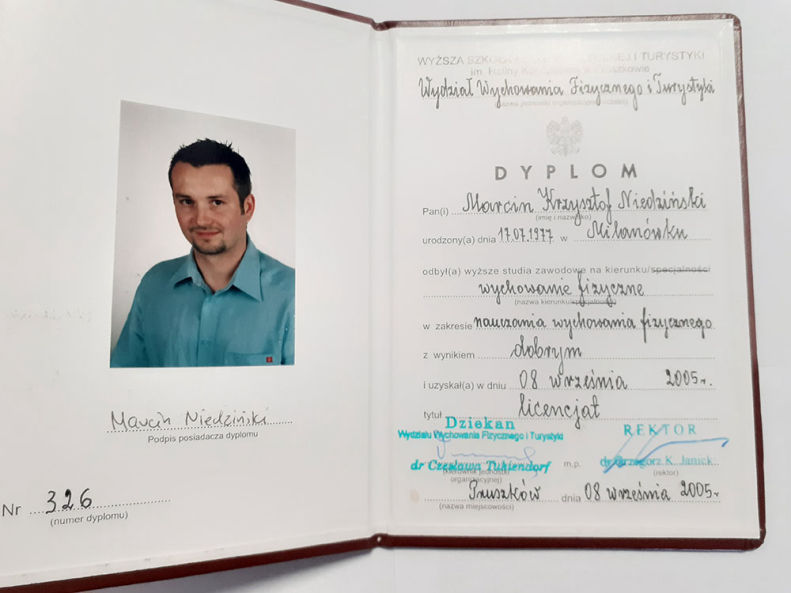 Marcin Niedziński
Podpis posiadacza dyplomu
Nr 326
(numer dyplomu)
WYŻSZA SZKOŁA I TURYSTYKI
im. Haliny
Wydział Wychowania Fizycznego i Turystyki
DYPLOM
Pan(i) Marcin Krzysztof Niedziński
(imię i nazwisko)
urodzony(a) dnia 17.07.1977 w Milanówku
odbył(a) wyższe studia zawodowe na kierunku/specjalności
wychowanie fizyczne
(nazwa kierunku/specjalności)
w zakresie nauczania wychowania fizycznego
z wynikiem dobrym
i uzyskał(a) w dniu 08 września 2005r.
tytuł licencjat
Dziekan
Wydziału Wychowania Fizycznego i Turystyki
dr Czesława Tukiendorf
(kierownik jednostki
organizacyjnej)
m.p.
REKTOR
dr Grzegorz K. Janick
(rektor)
Pruszków dnia 08 września 2005r.
(nazwa miejscowości)